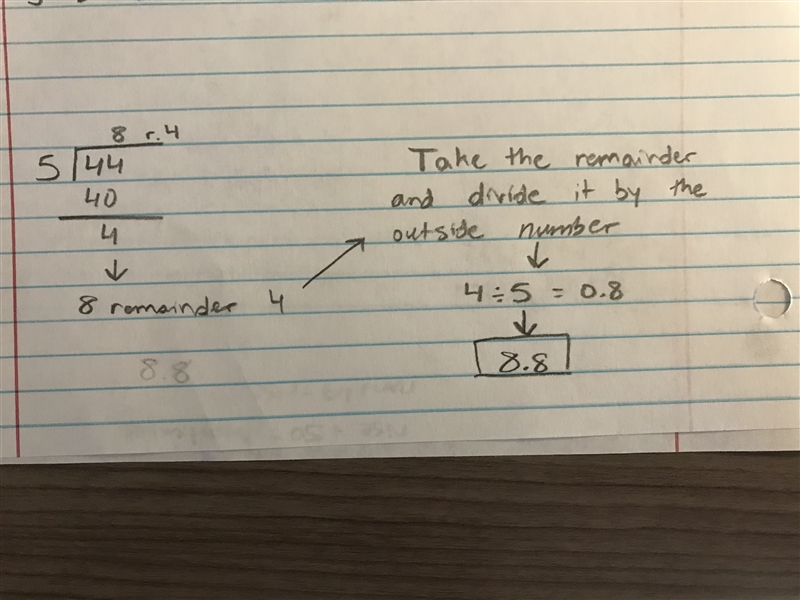 8 r.4
5 44
40
4
↓
8 remainder 4
8.8
Take the remainder
and divide it by the
outside number
↓
4 ÷ 5 = 0.8
↓
8.8